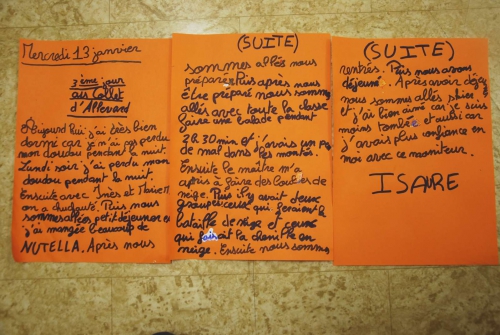 Mercredi 13 janvier
3ème jour
au Collet
d'Allevard
Aujourd'hui j'ai très bien
dormi car je n'ai pas perdu
mon doudou pendant la nuit.
Lundi soir j'ai perdu mon
doudou pendant la nuit.
Ensuite avec Inès et
on a chuchoté. Puis nous
sommes allés petit déjeuner et
j'ai mangée beaucoup de
NUTELLA. Après nous
(SUITE)
sommes allés nous
préparé Puis après nous
être préparé nous sommes
allés avec toute la classe
faire une balade pendant
2h 30 min et j'avais un peu
de mal dans les montés.
Ensuite le maître m'a
appris à faire des boules de
neige. Puis il y avait deux
groupes ceux qui feraient la
bataille de neige et ceux
qui fait la chenille en
neige. Ensuite nous sommes
(SUITE)
rentrés. Puis nous avons
déjeuné. Après avoir déj
nous sommes allés skier
et j'ai bien aimé car je suis
moins tombée et aussi car
j'avais plus confiance en
moi avec ce moniteur.
ISAURE